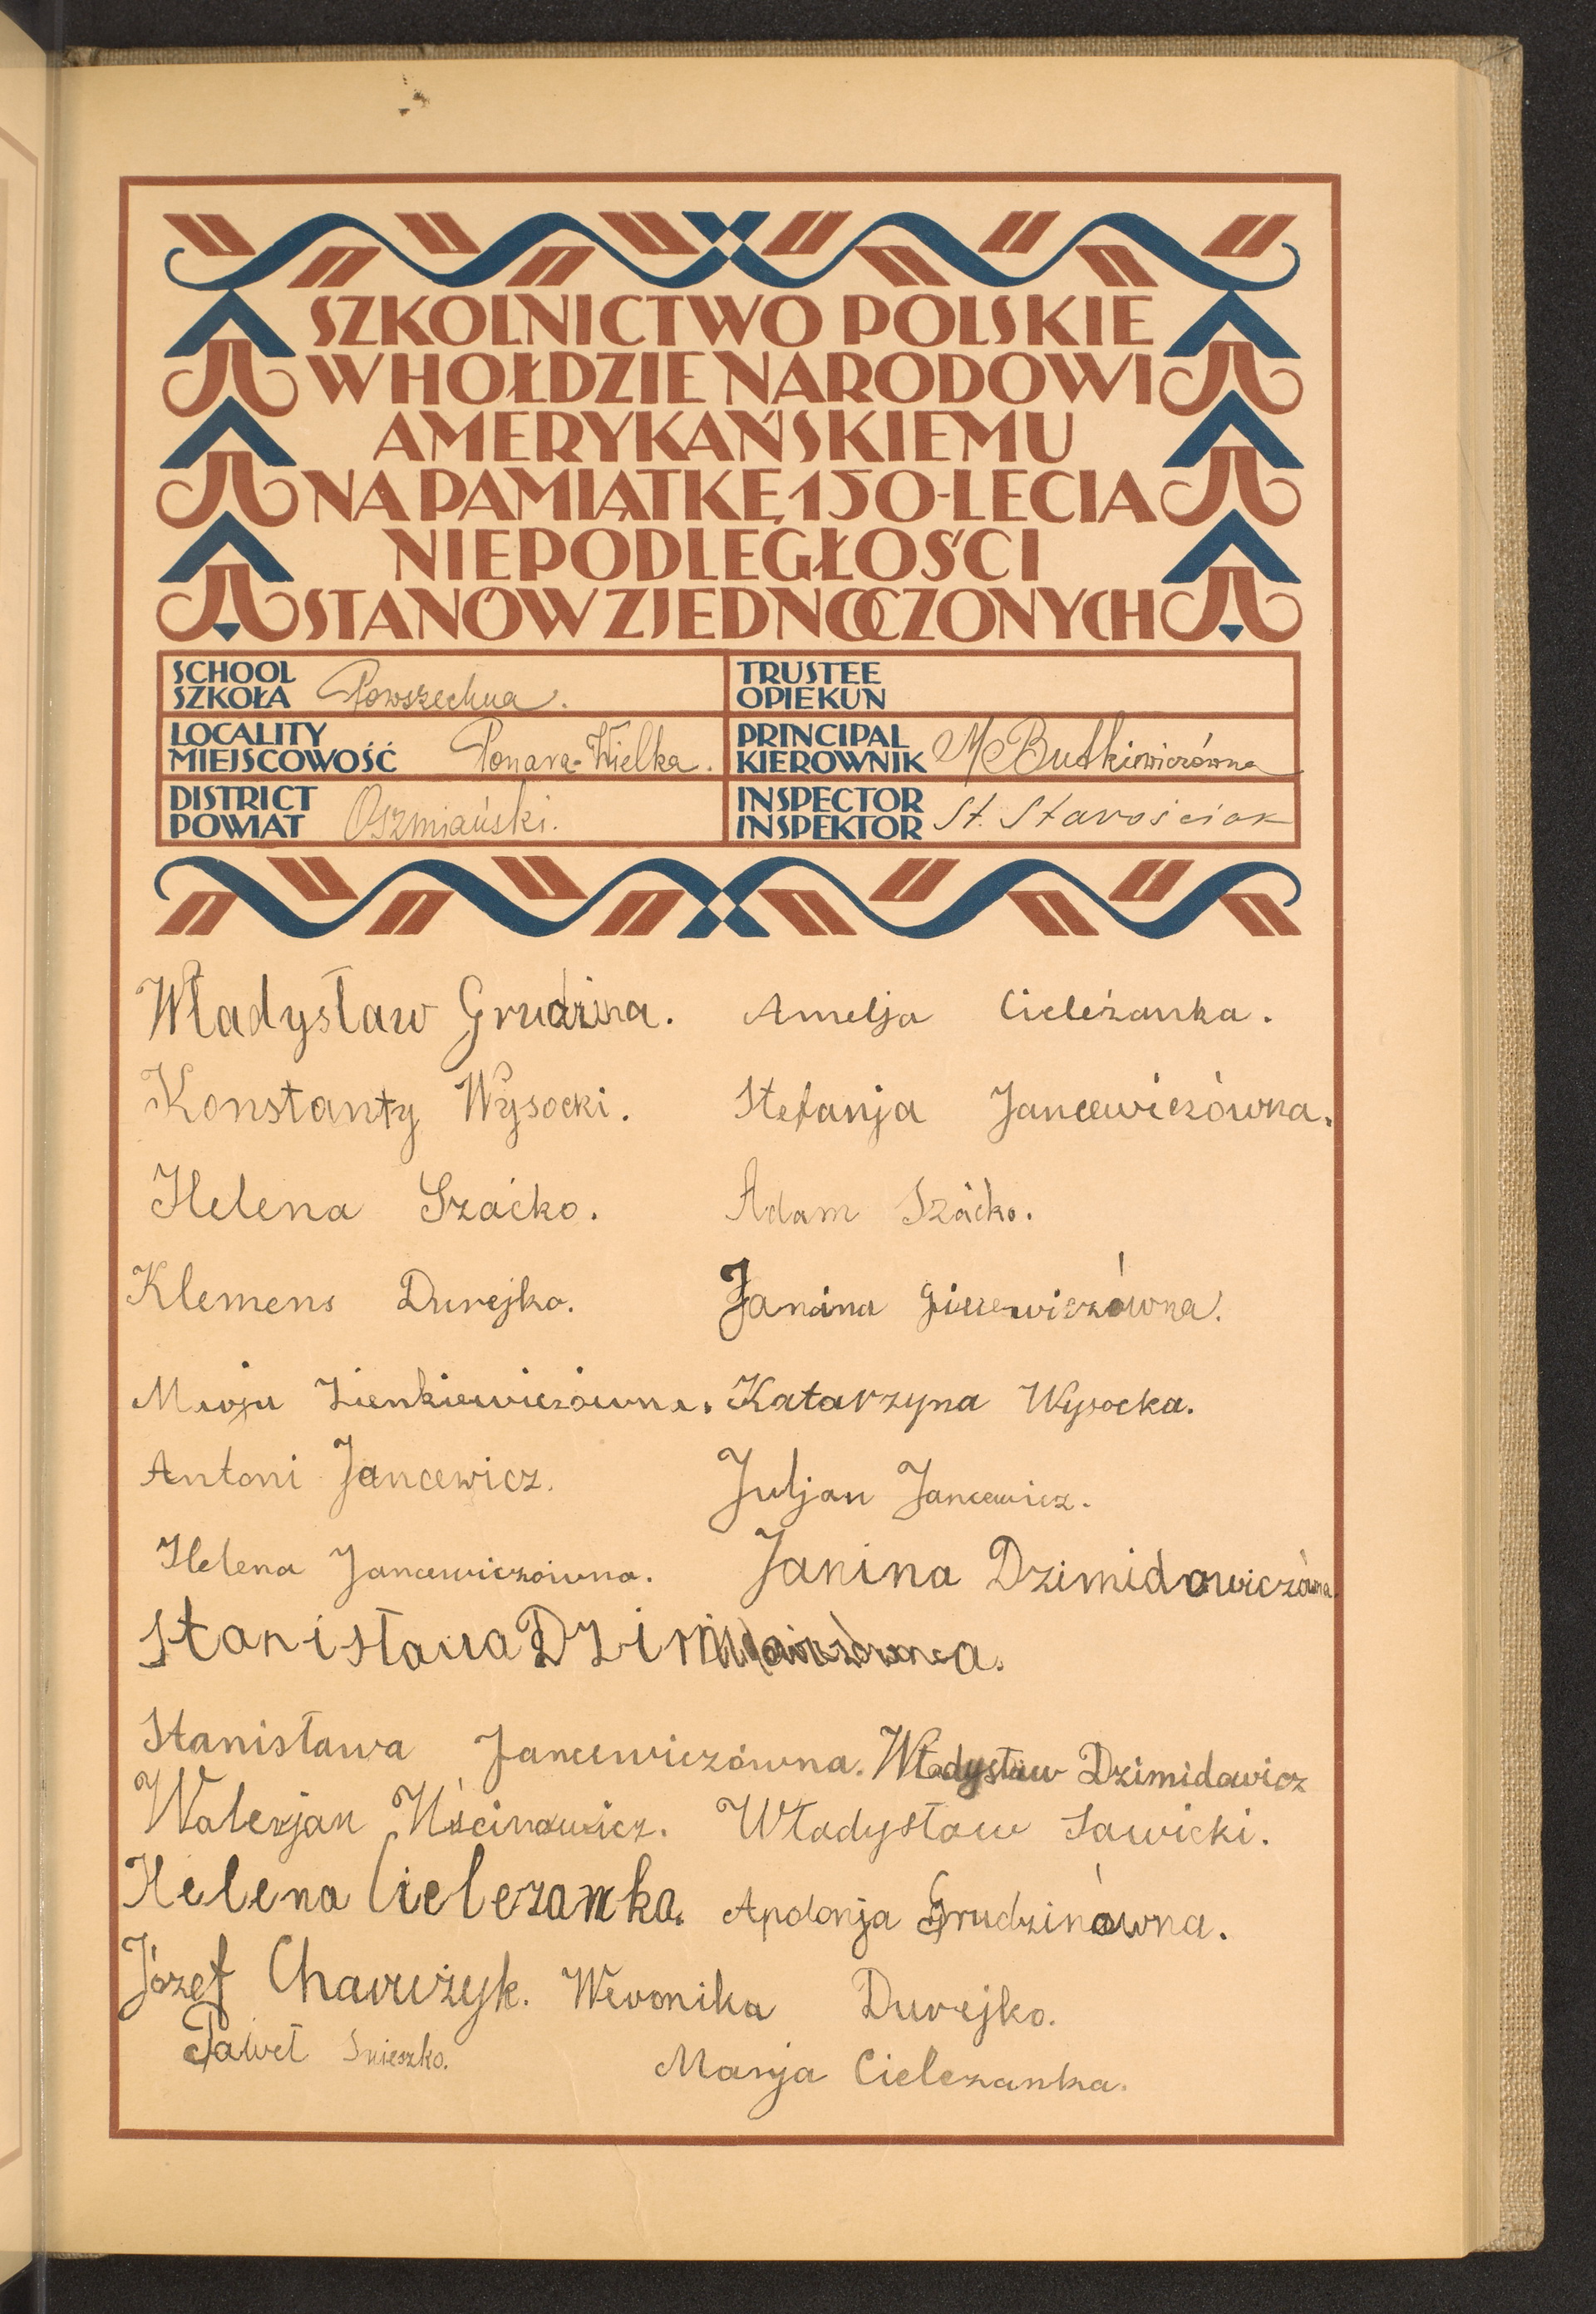 SZKOLNICTWO POLSKIE
W HOŁDZIE NARODOWI
AMERYKAŃSKIEMU
NA PAMIĄTKĘ 150-LECIA
NIEPODLEGŁOŚCI
STANÓW ZJEDNOCZONYCH
SCHOOL
SZKOŁA Powszechna.
TRUSTEE
OPIEKUN
LOCALITY
MIEJSCOWOŚĆ Ponara-Wielka.
PRINCIPAL
KIEROWNIK M Butkiewiczówna
DISTRICT
POWIAT Oszmiański.
INSPECTOR
INSPEKTOR St. Starościak
Władysław Grudzina. Amelja Cieleżanka.
Konstanty Wysocki. Stefanja Jancewiczówna.
Helena Szaćko. Adam Szaćko.
Klemens Durejko. Janina
Zienkiewiczówna. Katarzyna Wysocka.
Antoni Jancewicz. Juljan Jancewicz.
Helena Jancewiczówna. Janina Dzimidowiczówna.
Stanisława
Stanisława Jancewiczówna. Władysław Dzimidowicz
Walerjan Uścinowicz. Władysław Sawicki.
Helena Cielezanka. Apolonja Grudzinówna.
Józef Weronika Durejko.
Paweł Marja Cielezanka.